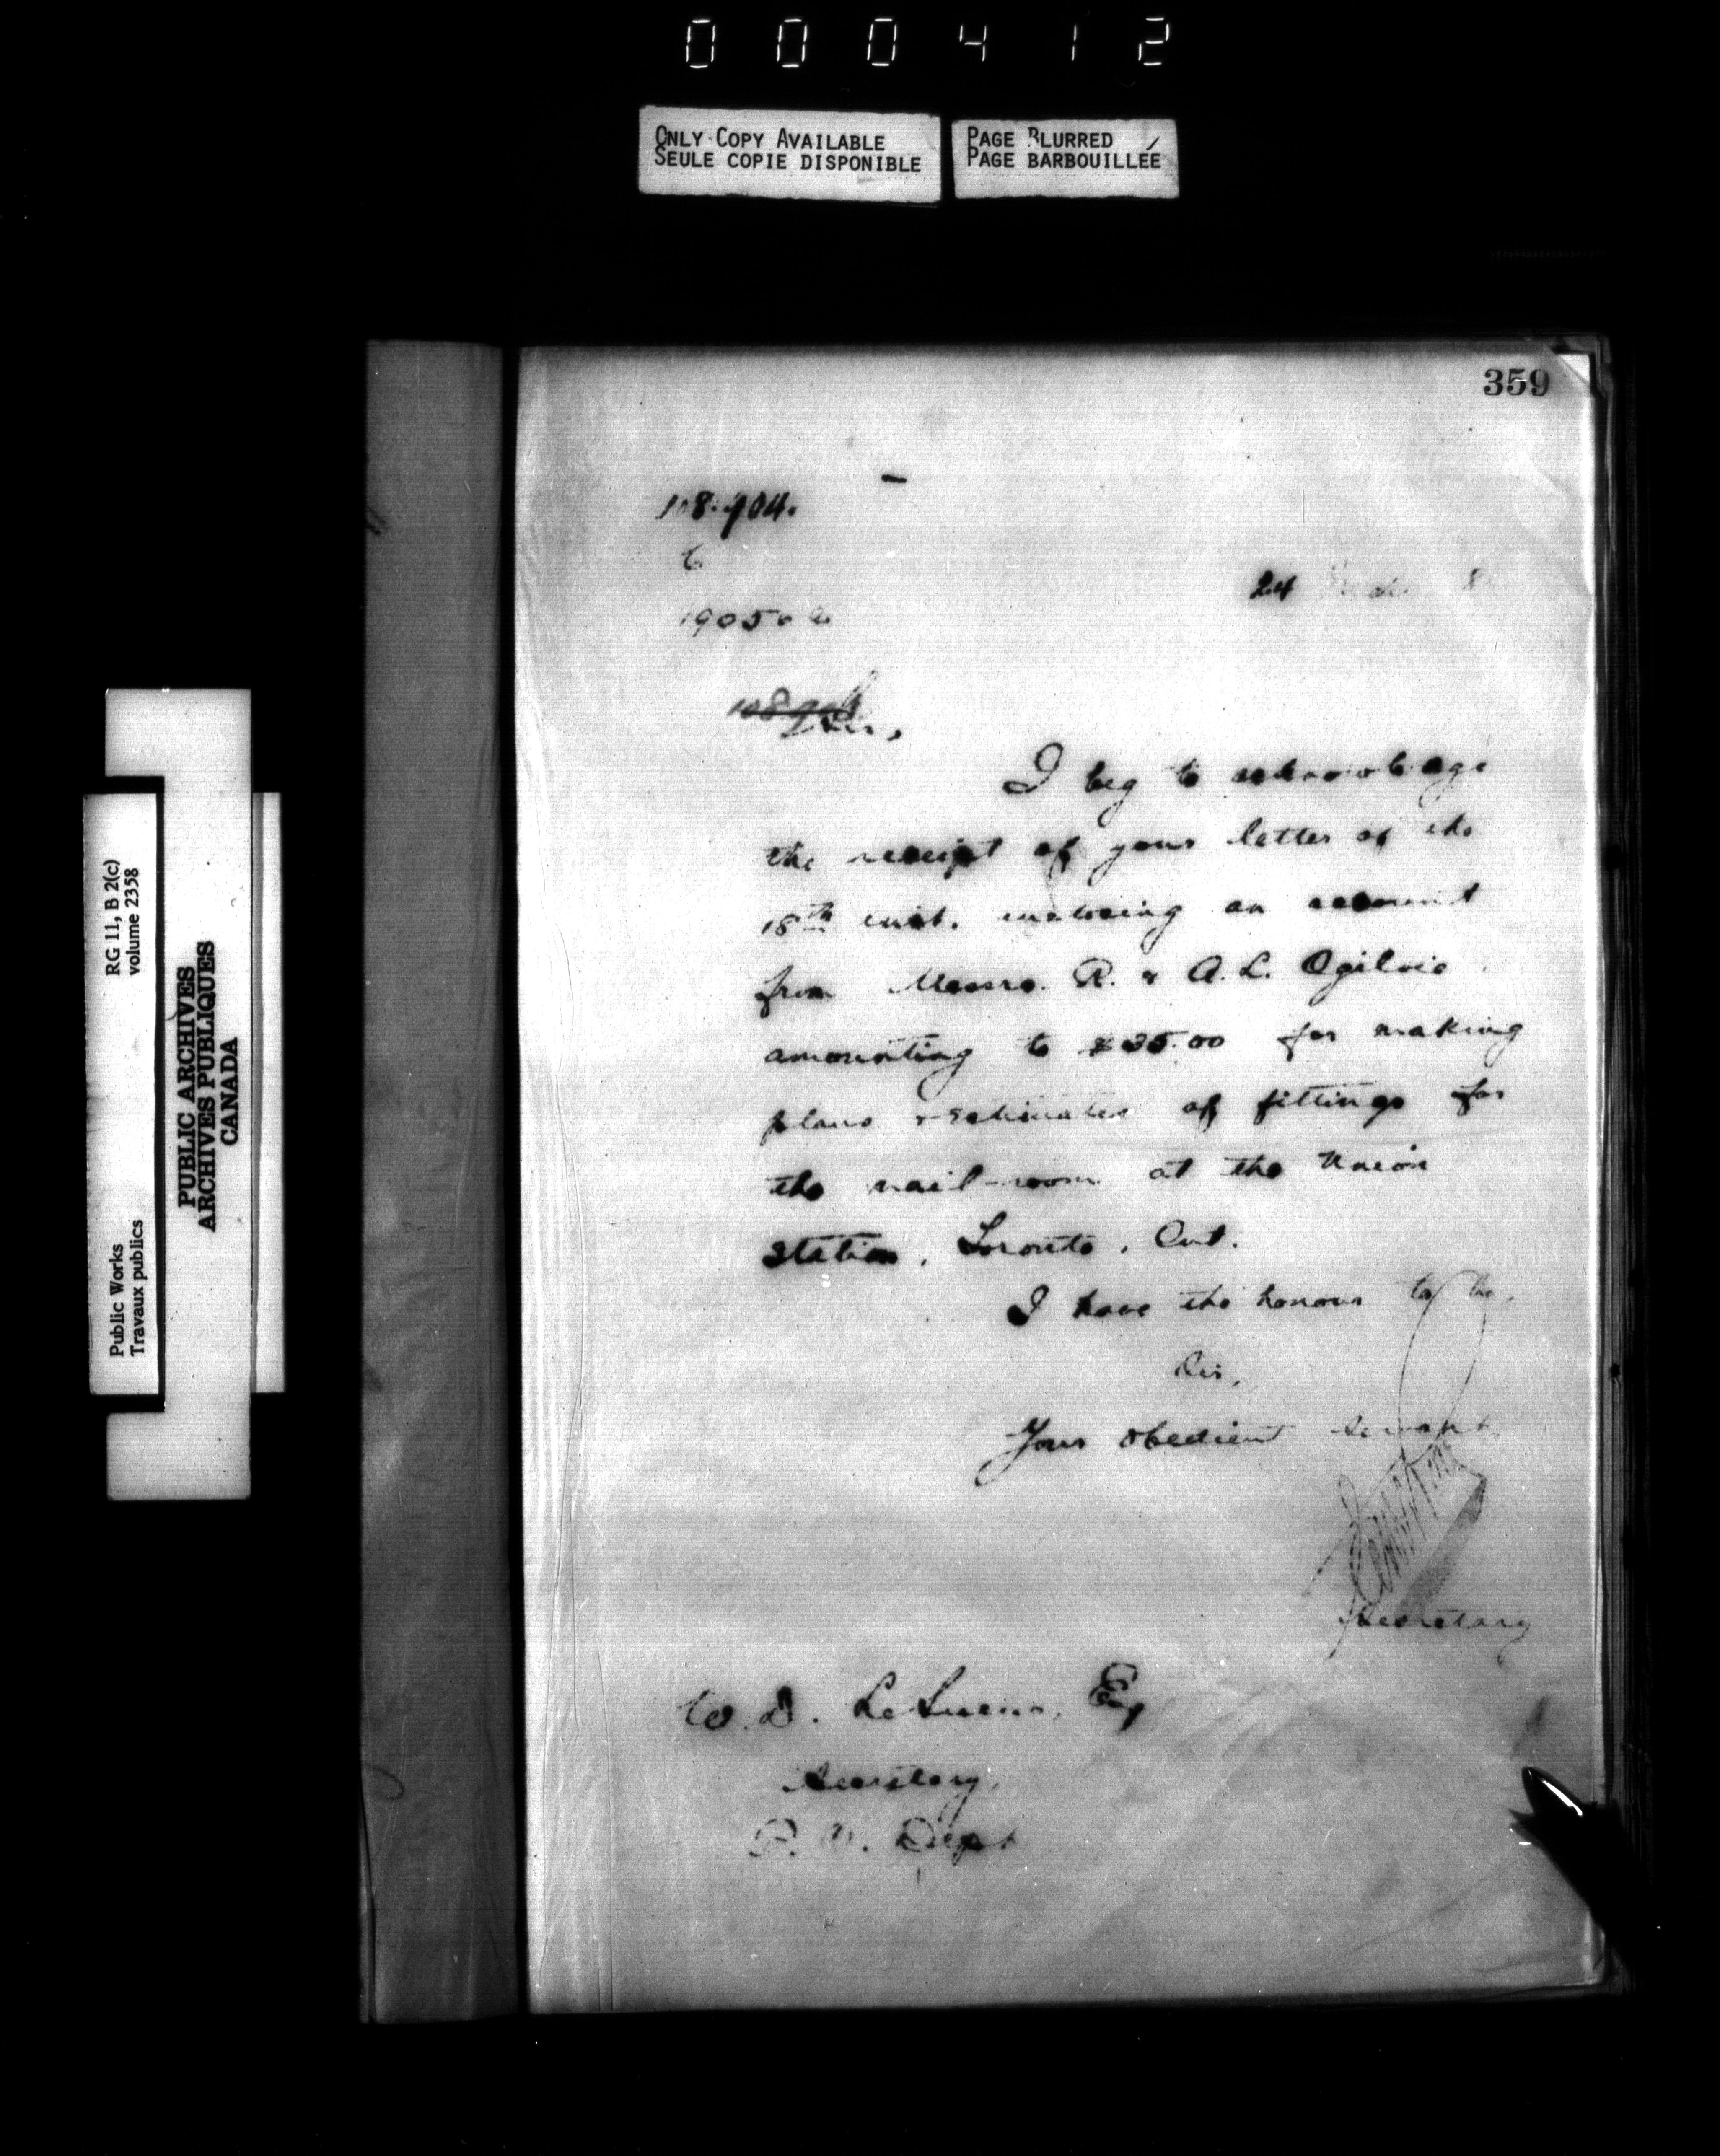 000412
ONLY COPY AVAILABLE
SEULE COPIE DISPONIBLE
PAGE BLURRED
PAGE BARBOUILLÉE
359
24
Sir,
I beg to acknowledge
the receipt of your letter of the
18th inst. enclosing an account
from Messrs. R. & A. L. Ogilvie
amounting to $35.00 for making
plans & estimates of fittings for
the mail-room at the Union
Station, Toronto, Ont.
I have the honour to be,
Sir,
Your obedient servant
Secretary
W. D. LeSueur, Esq
Secretary,
P. O. Dept
RG 11, B 2(c)
volume 2358
Public Works
Travaux publics
PUBLIC ARCHIVES
ARCHIVES PUBLIQUES
CANADA